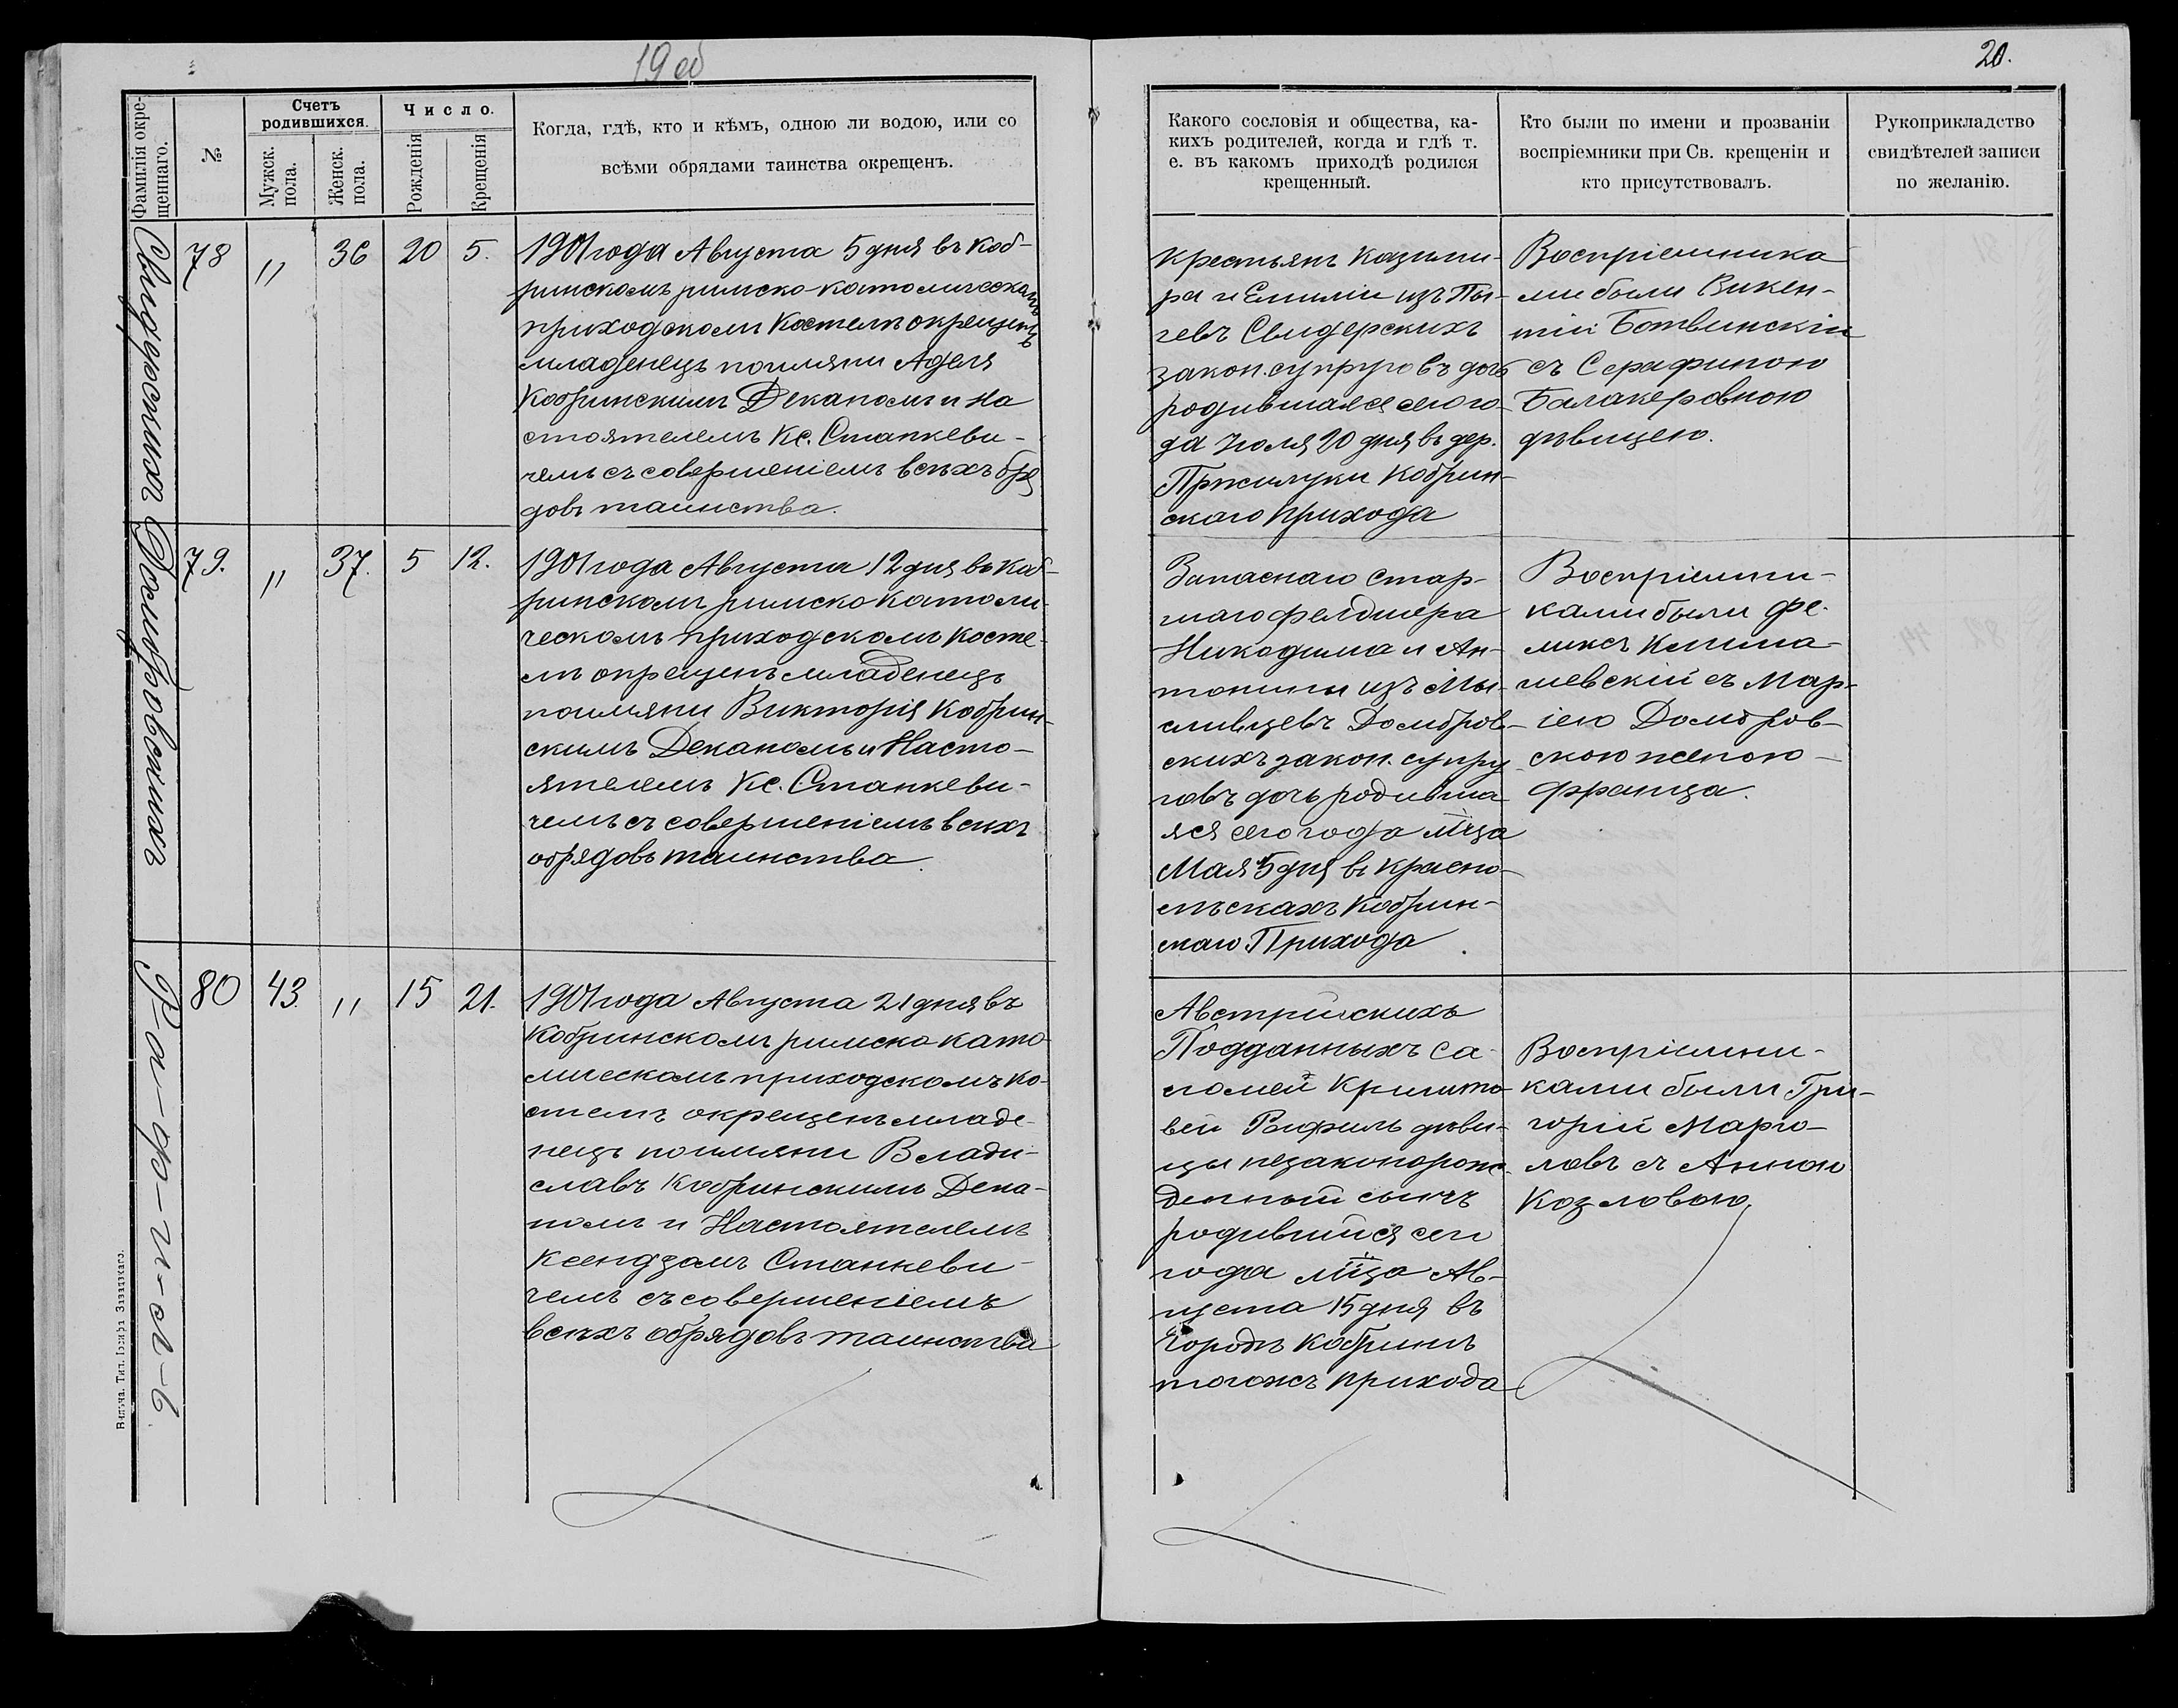 19 об
20.
Фамилія окрещеннаго.
№
Счетъ родившихся.
Мужск. пола.
Женск. пола.
Число.
Рожденія
Крещенія
Когда, гдѣ, кто и кѣмъ, одною ли водою, или со
всѣми обрядами таинства окрещенъ.
Какого сословія и общества, ка-
кихъ родителей, когда и гдѣ т.
е. въ какомъ приходѣ родился
крещенный.
Кто были по имени и прозваніи
воспріемники при Св. крещеніи и
кто присутствовалъ.
Рукоприкладство
свидѣтелей записи
по желанію.
Свидерскихъ
78
"
36
20
5.
1901 года Августа 5 дня въ Коб-
ринскомъ римско-католическомъ
приходскомъ Костелѣ окрещенъ
младенецъ по имяни Аделя
Кобринскимъ Деканомъ и На
стоятелемъ Кс. Станкеви-
чемъ съ совершеніемъ всѣхъ обря
довъ таинства.
Крестьянъ Казими-
ра и Емиліи изъ Пы-
чевъ Свидерскихъ
закон. супруговъ дочь
родившаяся сего го-
да Іюля 20 дня въ дер.
Прилуки Кобрин-
скаго Прихода
Воспріемника
ми были Викен-
тій Ботвинскій
съ Серафиною
Балакеровною
дѣвицею.
Домбровскихъ
79.
"
37.
5
12.
1901 года Августа 12 дня въ Коб-
ринскомъ римско католи-
ческомъ приходскомъ Косте-
лѣ окрещенъ младенецъ
по имяни Викторія Кобрин-
скимъ Деканомъ и Насто-
ятелемъ Кс. Станкеви-
чемъ съ совершеніемъ всѣхъ
обрядовъ таинства.
Запаснаго Стар-
шаго фелдшера
Никодима и Ан-
тонины изъ Мы-
сливцевъ Домбров-
скихъ закон. супру
говъ дочь родивша
яся сего года мѣца
Мая 5 дня въ Красно-
лѣскахъ Кобрин-
скаго Прихода.
Воспріемни-
ками были Фе-
ликсъ
шевскій съ Мар-
іею Домбров-
скою женою
Франца.
Ра-ф-и-л-ь
80
43.
"
15
21.
1901 года Августа 21 дня въ
Кобринскомъ римско като-
лическомъ приходскомъ Ко-
стелѣ окрещенъ младе-
нецъ по имяни Влади-
славъ Кобринскимъ Дека-
номъ и Настоятелемъ
Ксендзомъ Станкеви-
чемъ съ совершеніемъ
всѣхъ обрядовъ таинства
Австрійскихъ
Подданныхъ Са-
ломеи
Рафиль дѣви-
цы незаконорож-
денный сынъ
родившійся сего
года мѣца Ав-
густа 15 дня въ
Городѣ Кобринѣ
тогожъ прихода
Воспріемни-
ками были Гри-
горій Марго-
ловъ съ Анною
Козловою.
Вильна. Тип. Іосифа Завадзкаго.